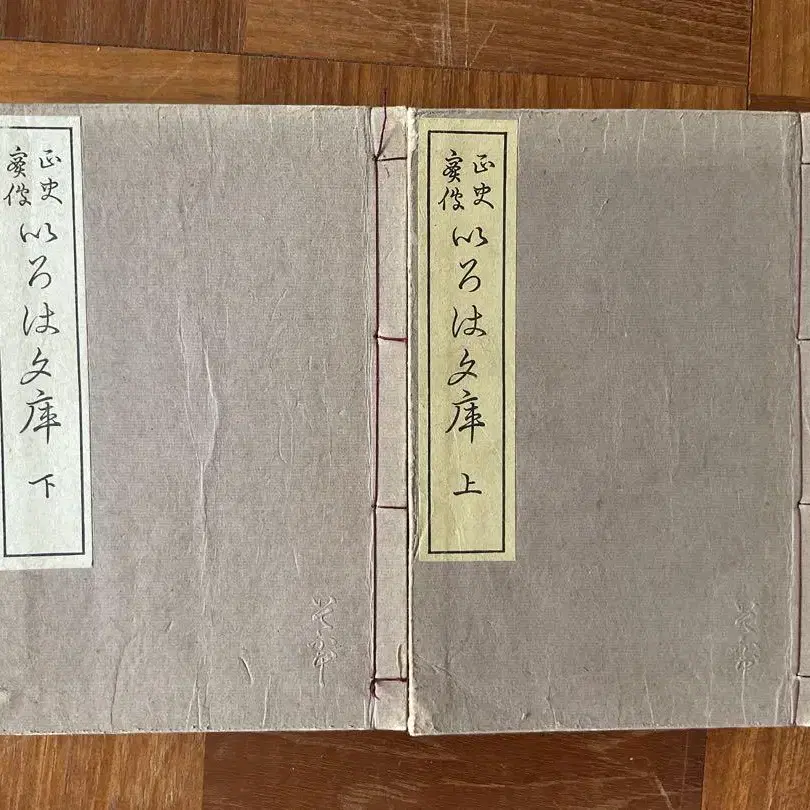 正史
實傳
いろは文庫 上
正史
實傳
いろは文庫 下